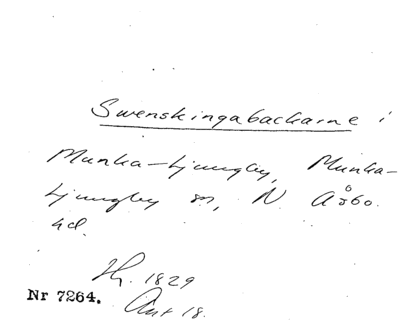 Swenskingabackarne i
Munka-Ljungby, Munka-
Ljungby sn, N. Åsbo
hd.
1829
Nr 7264.
Ant 18.